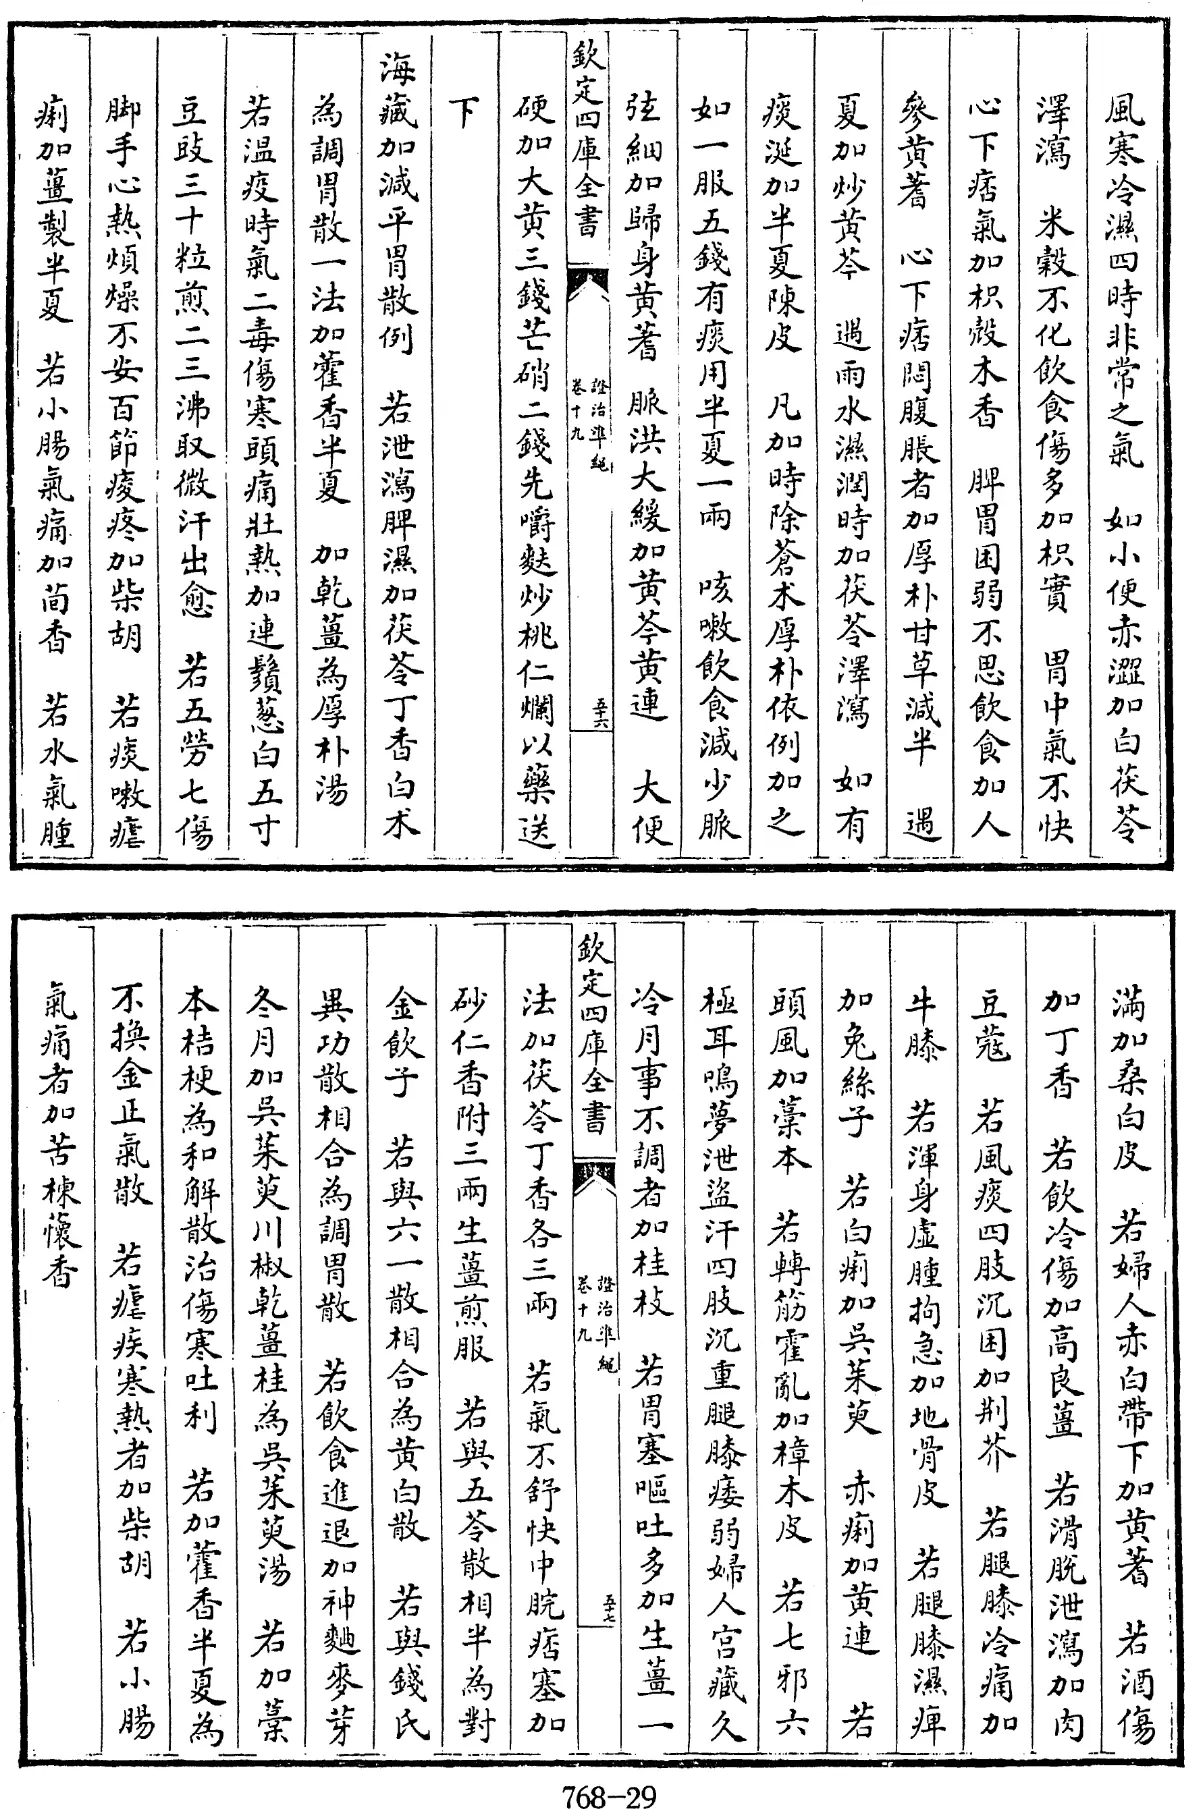 風寒冷濕四時非常之氣　如小便赤澀加白茯苓
澤瀉　米穀不化飲食傷多加枳實　胃中氣不快
心下痞氣加枳殼木香　脾胃困弱不思飲食加人
參黃蓍　心下痞悶腹脹者加厚朴甘草減半　遇
夏加炒黃芩　遇雨水濕潤時加茯苓澤瀉　如有
痰涎加半夏陳皮　凡加時除蒼术厚朴依例加之
如一服五錢有痰用半夏一兩　咳嗽飲食減少脈
弦細加歸身黃蓍　脈洪大緩加黃芩黃連　大便
欽定四庫全書
證治準繩
卷十九
五十六
硬加大黃三錢芒硝二錢先嚼麩炒桃仁爛以藥送
下
海藏加減平胃散例　若泄瀉脾濕加茯苓丁香白术
為調胃散一法加藿香半夏　加乾薑為厚朴湯
若温疫時氣二毒傷寒頭痛壯熱加連鬚葱白五寸
豆豉三十粒煎二三沸取微汗出愈　若五勞七傷
脚手心熱煩燥不安百節痠疼加柴胡　若痰嗽瘧
痢加薑製半夏　若小腸氣痛加茴香　若水氣腫
滿加桑白皮　若婦人赤白帶下加黃蓍　若酒傷
加丁香　若飲冷傷加高良薑　若滑脫泄瀉加肉
豆蔻　若風痰四肢沉困加荆芥　若腿膝冷痛加
牛膝　若渾身虛腫拘急加地骨皮　若腿膝濕痺
加兔絲子　若白痢加吳茱萸　赤痢加黃連　若
頭風加藁本　若轉筋霍亂加樟木皮　若七邪六
極耳鳴夢泄盜汗四肢沉重腿膝痿弱婦人宮藏久
冷月事不調者加桂枝　若胃塞嘔吐多加生薑一
欽定四庫全書
證治準繩
卷十九
五十七
法加茯苓丁香各三兩　若氣不舒快中脘痞塞加
砂仁香附三兩生薑煎服　若與五苓散相半為對
金飲子　若與六一散相合為黃白散　若與錢氏
異功散相合為調胃散　若飲食進退加神麯麥芽
冬月加吳茱萸川椒乾薑桂為吳茱萸湯　若加藁
本桔梗為和解散治傷寒吐利　若加藿香半夏為
不換金正氣散　若瘧疾寒熱者加柴胡　若小腸
氣痛者加苦楝懷香
768-29